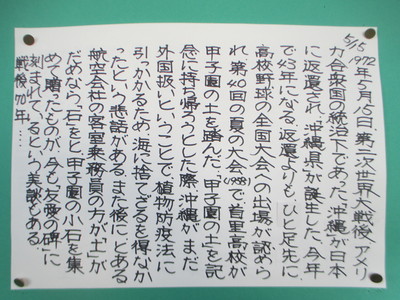 5/15
1972年5月15日、第二次世界大戦後、アメリ
カ合衆国の統治下であった「沖縄」が日本
に返還され「沖縄県」が誕生した。今年
で43年になる。返還よりも、ひと足先に
高校野球の全国大会への出場が認めら
れ、第40回の夏の大会(1958)で、首里高校が
甲子園の土を踏んだ。「甲子園の土」を記
念に持ち帰ろうとした際、沖縄が、まだ
外国扱い、ということで、植物防疫法に
引っかかるため、海に捨てざるを得なか
ったという悲話がある。また後に、とある
航空会社の客室乗務員の方が「土」が
だめなら、「石」をと、甲子園の小石を集
めて贈ったものが、今も「友愛の碑」に
刻まれているという、美談もある。
戦後70年・・・・